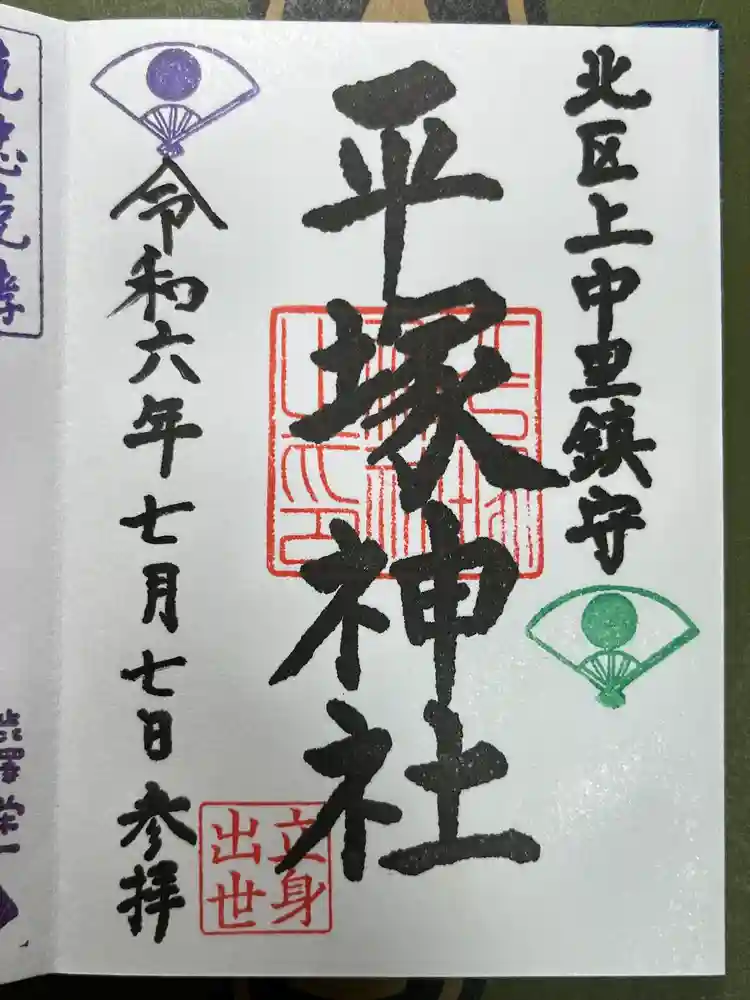 北区上中里鎮守
平塚神社
令和六年七月七日参拝
立身
出世
克忠克孝
澁澤栄一